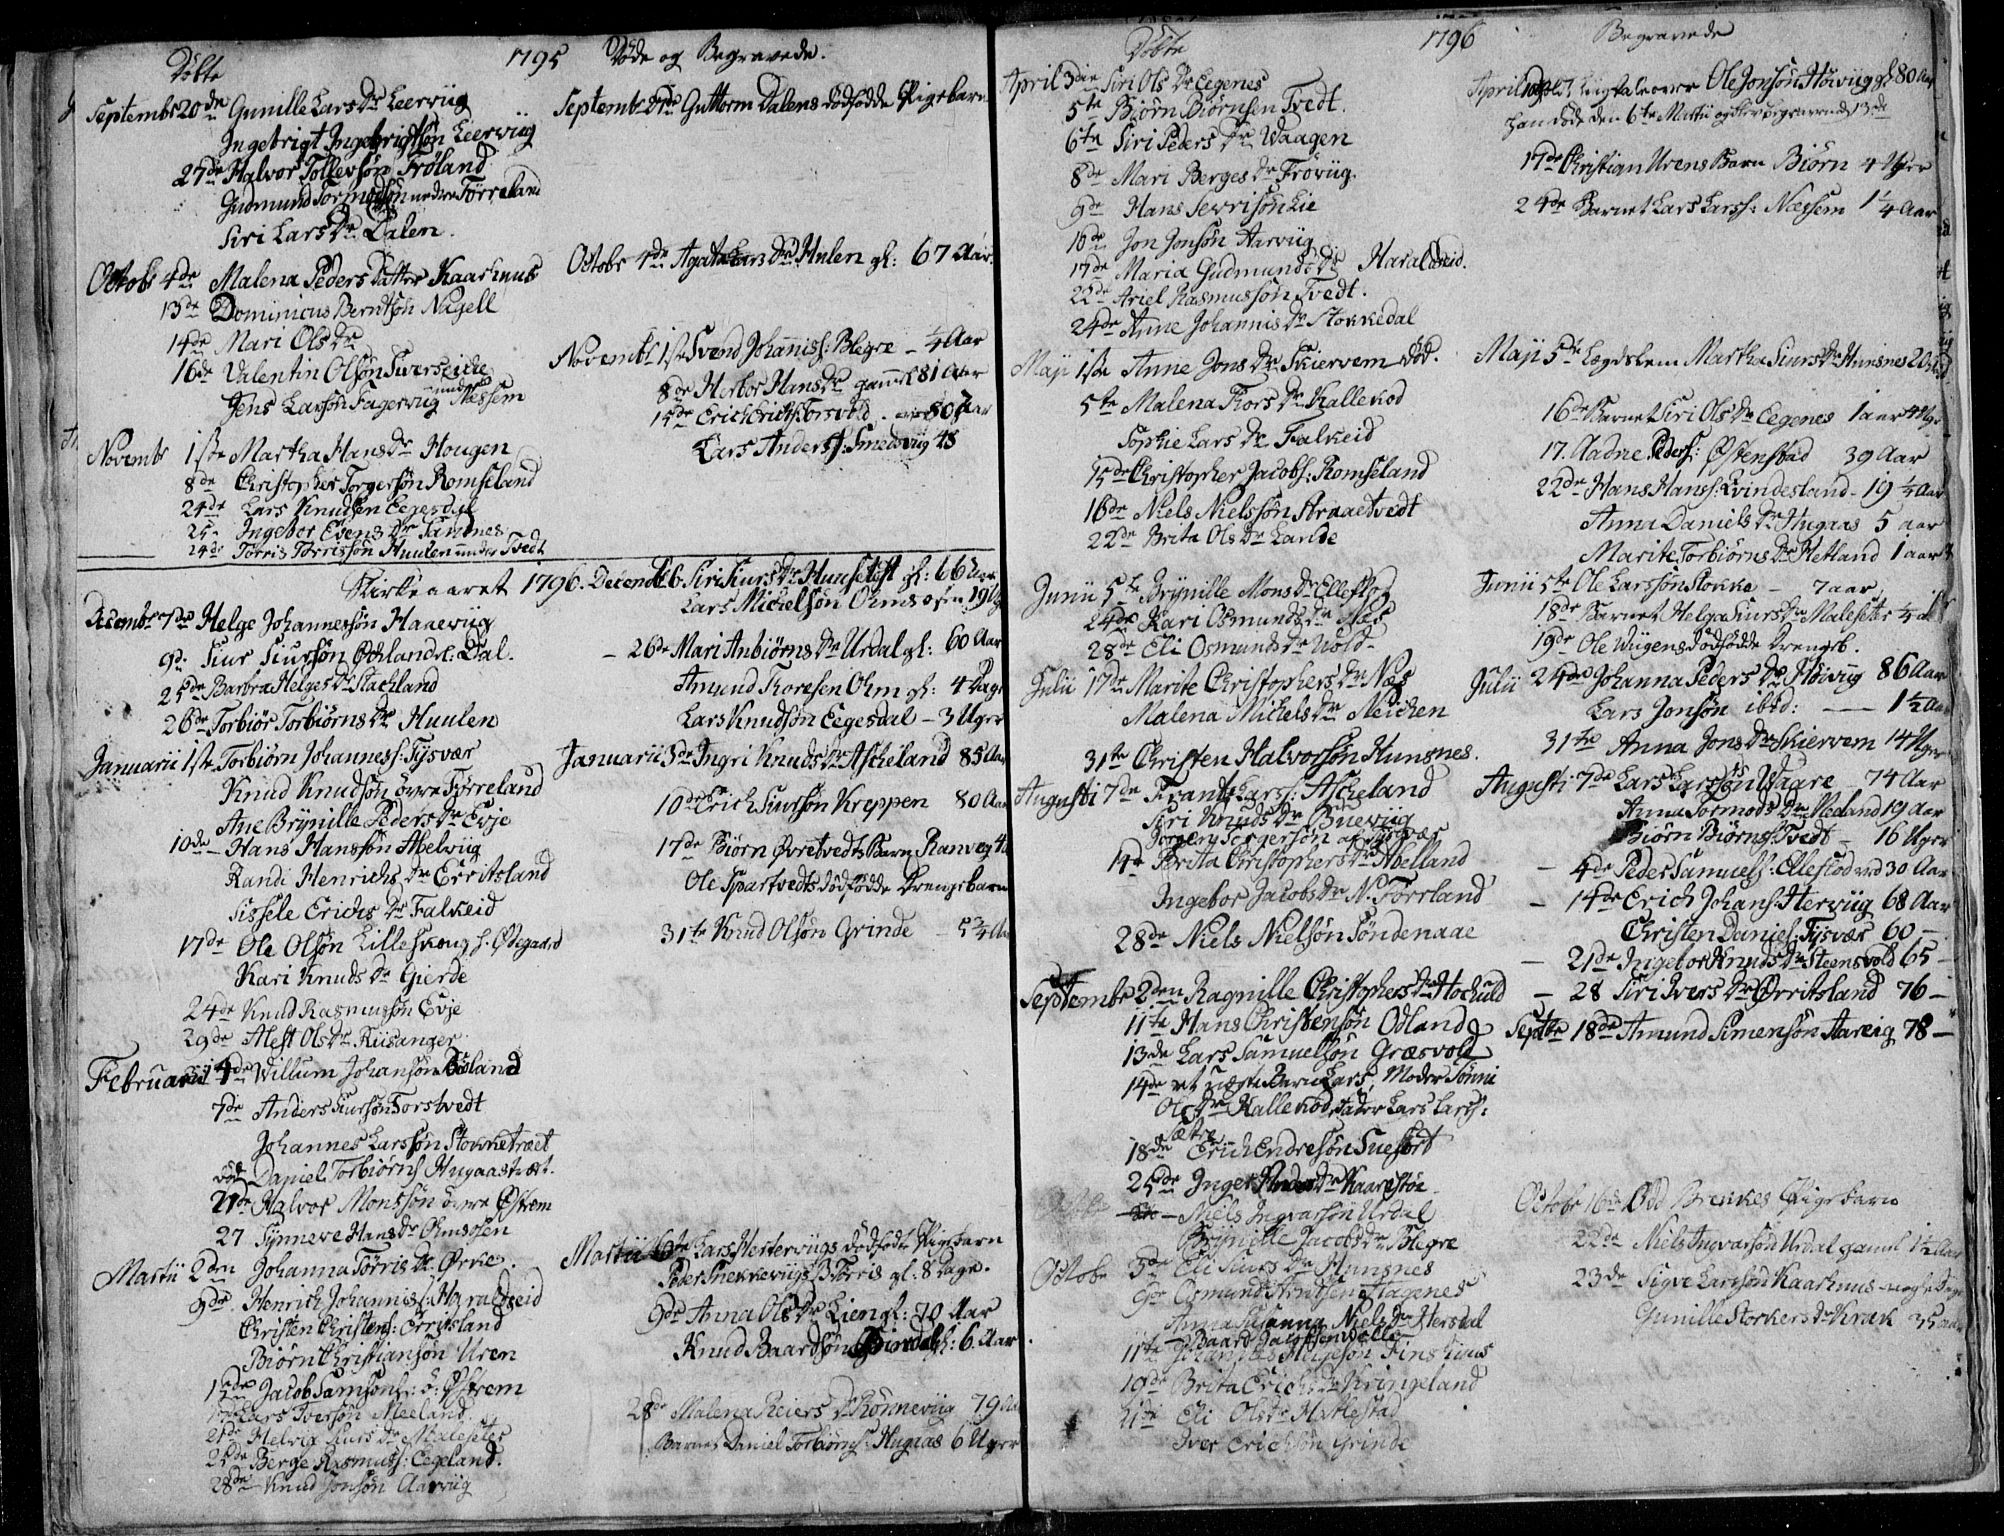 Döbte
1795
Döde og Begravede.
Septembr 20de Gunille Lars Dr Leervug
Ingebrigt Ingebrigtsøn Leerviig
27de Halvor Tollevsøn Frøland
Gudmund Tormodsøn nedre Førreland
Siri Lars Dr Dalen.
Octobr 4de Malena Peders Datter Kaarhuus
13de Dominicus Berntsøn Nagell
14de Mari Ols Dr
16de Valentin Olsøn
Jens Larsøn Fagerviig Næssem
Novembr 1ste Martha Hans Dr Hougen
8de Christopher Torgersøn Romseland
24de Lars Knudsen Eegesdal
25 Ingebor Evens Dr Sandnes
24de Torris Torrissøn Huulen under Tvedt
Septembr Guttorm Dalens dödfödde Pigebarn
Octobr 4de Agata Lars Dr Hulen gl: 67 Aar.
Novembr 1ste Svend Johanniss: Blegre – ¼ Aar
8de Herbor Hans Dr gammel 81 Aar
15de Erich Erichs: Torsvold 80 Aar
Lars Anders: Smedsviig 48
Kirkeaaret 1796.
Decembr 7de Helge Johannessøn Haaeviig
9de Siur Siursøn Dal.
25de Barbra Helges Dr Stachland
26de Torbiør Torbiørns Dr Huulen
Januarii 1ste Torbiørn Johanness: Tysvær
Knud Knudsøn övre Førreland
Ane Brynille Peders Dr Evje
10de Hans Hanssøn Abelviig
Randi Henrichs Dr Erritsland
Sissele Erichs Dr Falkeid
17de Ole Olsøn Lilleskoug s. Ødegaard
Kari Knuds Dr Gierde
24de Knud Rasmussøn Evje
29de Alest Ols Dr Riisanger
Februarii 1de Willum Johansøn
7de Anders Siursøn Torstvedt
Johannes Larssøn Stokketræet
död Daniel Torbiørns: Hugaastræet.
21de Halvor Monssøn övre Østrem
27 Synneve Hans Dr Omsosen
Martii 2den Johanna Torris Dr Ørke.
9de Henrich Johannis: Haraldseid
Christen Christens: Erritsland
Biørn Christiansøn Uren
15de Jacob Samsons: ö: Østrem
Lars Iversøn Meeland.
Helvig Siurs Dr Maleseter
25de Berge Rasmuss: Eegeland.
28de Knud Jonsøn Aarviig
Decembr 6. Siri Siurs Dr gl: 66 Aar
Lars Michelsøn Ohmsosen 19
26de Mari Anbiørns Dr Urdal gl: 60 Aar
Amund Thoresen Ohm gl: 4 Dage
Lars Knudsøn Eegesdal – 3 Uger
Januarii 3de Ingri Knuds Dr Ascheland 85 Aar
10de Erich Siursøn Kreppen 80 Aar
17de Biørn Øvretvedts Barn Ranveg
Ole Spartvedts dödfödde Drengebarn
31te Knud Olsøn Grinde – 5¾ Aar
Martii Lars Hesterviigs dödfödde Pigebarn
Peder Snekkeviigs B. Torris gl: 8 Dage.
9de Anna Ols Dr Lien gl: 70 Aar
Knud Baardsøn gl: 6 Aar
28de Malena Reiers Dr Rönneviig 79 Aar
Barnet Daniel Torbiörns: Hugaas 6 Uger
Döbte
1796
Begravede
April 3die Siri Ols Dr Eegenes
5te Biørn Biørnsen Tvedt.
6te Siri Peders Dr Waagen
8de Mari Berges Dr Frøviig.
9de Hans Sevrisøn Lie
10de Jon Jonsøn Aarviig
17de Maria Gudmunds Dr Haraldseid.
22de Ariel Rasmussøn Tvedt.
24de Anne Johannis Dr Stokkedal
Maji 1ste Anne Jons Dr Skiervem död.
5te Malena Thors Dr Kallekod
Sophie Lars Dr Falkeid
15de Christopher Jacobs: Romseland
16de Niels Nielssøn Straaetvedt
22de Brita Ols Dr Lande
Junii 5te Brynille Mons Dr Ellestod
24de Kari Osmunds Dr Næs
28de Eli Osmunds Dr Wold
Julii 17de Marite Christophers Dr Næs
Malena Michels Dr Neichen
31te Christen Halvorsøn Hunsnes.
Augusti 7de Frants Larss: Ascheland
Siri Knuds Dr Bueviig
Torgersøn af Tysvær
14de Brita Christophers Dr Abelland
Ingebor Jacobs Dr N. Førrland
28de Niels Nielsøn Søndenaae
Septembr 2den Ragnille Christophers Dr
11te Hans Christensøn Odland
13de Lars Samuelsøn Græsvold
14de et uægte Barn Lars, Moder Sönni
Ols Dr Kallekod, Fader Lars Lars:
Sætre
18de Erich Endresøn Suesort
25de Inger Dr Kaarstøe
Niels Ingvarsøn Urdal
Brynille Jacobs Dr Blegre
Octobr 5de Eli Siurs Dr Hunsnes
9de Osmund Arntsen Hagenes
Anna Susanna Niels Dr Herstal
Baard Jacobsen
11te Johannes Helgesøn Finshuus
19de Brita Erichs Dr Kringeland
21de Eli Ols Dr Hatlestad
Iver Erichsøn Grinde
April Ligtaleovre Ole Jonsøn Høiviig gl 80 Aar
han döde den 6te Martii og blev begravende 13de
17de Christian Urens Barn Biørn 4 Uger
24de Barnet Lars Larss: Næssem 1¼ Aar
Maji 5te Lægdslem Martha Siurs Dr Hunsnes
16de Barnet Siri Ols Dr Eegenes 1 aar
17. Aadne Peders: Østenstad 39 Aar
22de Hans Hanss: Qvindesland – 19 ¼ Aar
Anna Daniels Dr Hugaas 5 aar
Marite Torbiørns Dr Hetland 1 aar
Junii 5te Ole Larssøn Stokke – 7 aar
18de Barnet Helga Siurs Dr Malesetter
19de Ole Wiigens dödfödde Drengeb.
Julii 24de Johanna Peders Dr Høiviig 86 Aar
Lars Jonsøn ibid: 1½ Aar
31te Anna Jons Dr Skiervem 14 Uger
Augusti 7de Lars Larssøn Waare 74 Aar
Anna Tormods Dr Meland 19 Aar
Biørn Biørns: Tvedt – 16 Uger
– 4de Peder Samuels: Ellestod ved 30 Aar
– 14de Erich Johans: Herviig 68 Aar
Christen Daniels: Tysvær 60 –
– 21de Ingebor Knuds Dr Steensvold 65 –
– 28 Siri Ivers Dr Ørritsland 76 –
Septbr 18de Amund Simensøn Aareig 78 –
Octobr 16de Odd Brekkes Pigebarn
22de Niels Ingvarsøn Urdal gamel 1½ Aar
23de Sigve Larsøn Kaarhuus
Gunille Storkers Dr Krak 35 aar